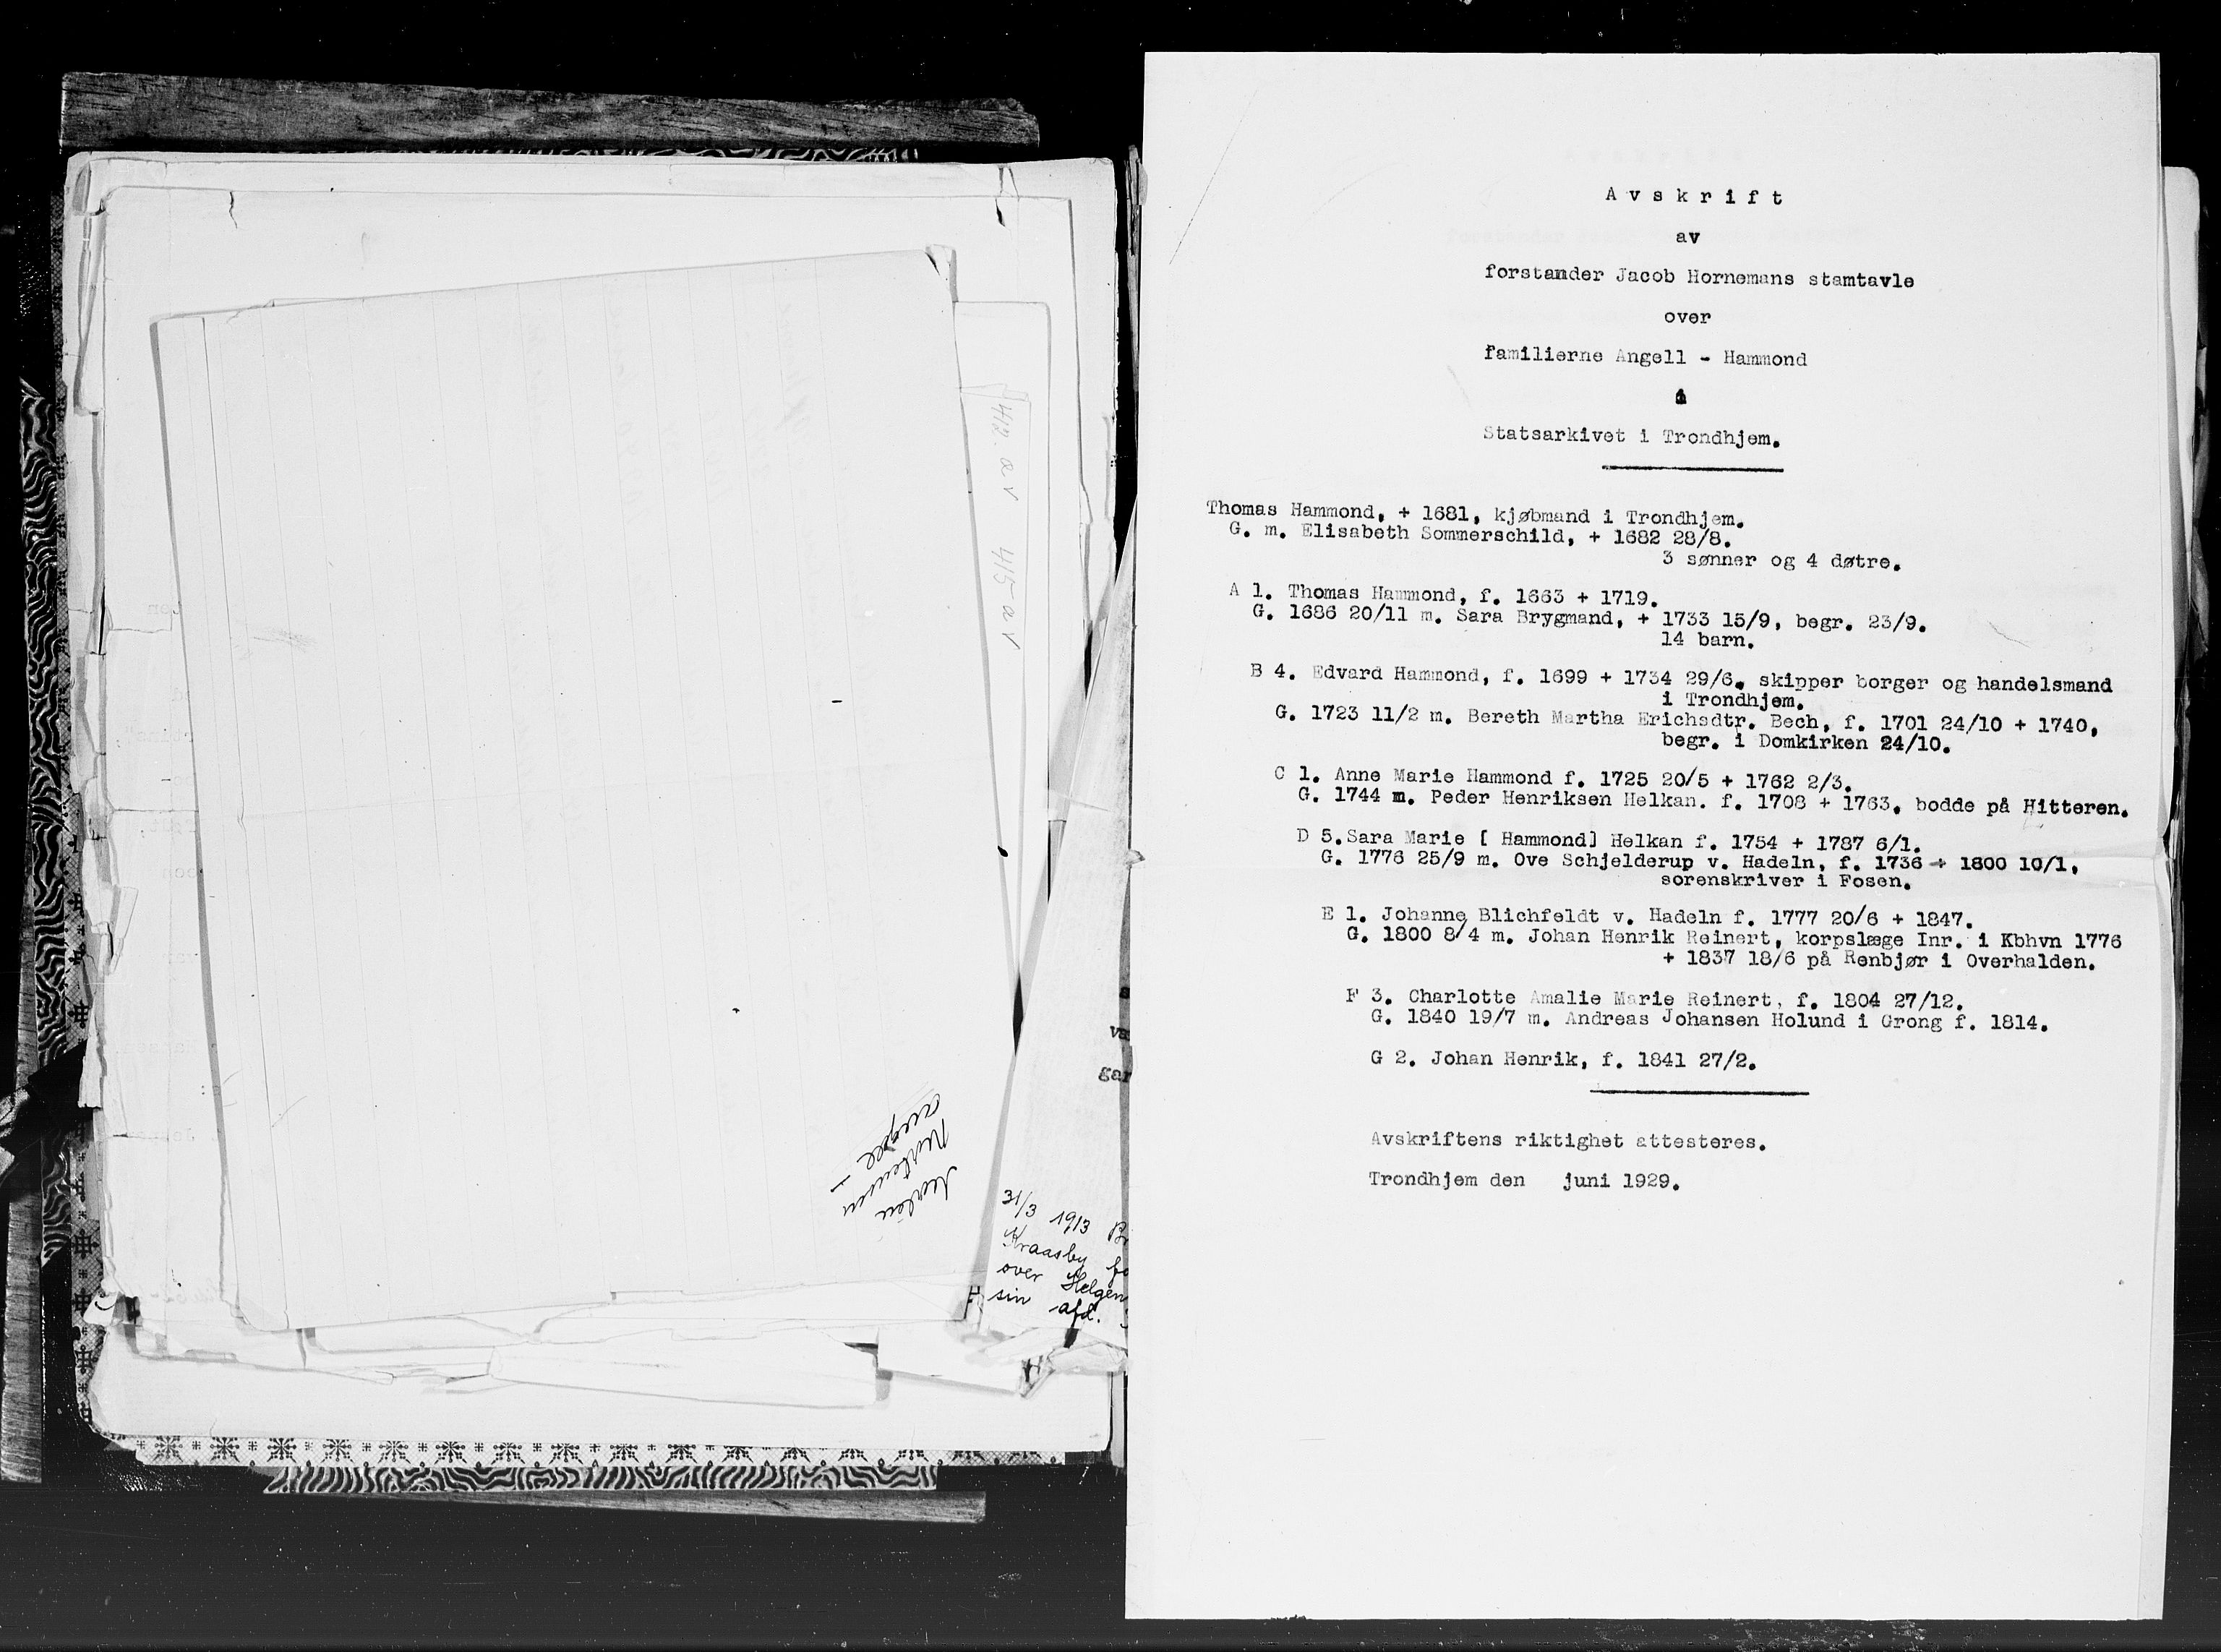 412. av 415 av
31/3 1913
Kraasby
over Helgen
sin afd.
A v s k r i f t
av
forstander Jacob Hornemans stamtavle
over
familierne Angell - Hammond
i
Statsarkivet i Trondhjem.
Thomas Hammond, + 1681, kjøbmand i Trondhjem.
G. m. Elisabeth Sommerschild, + 1682 28/8.
3 sønner og 4 døtre.
A 1. Thomas Hammond, f. 1663 + 1719.
G. 1686 20/11 m. Sara Brygmand, + 1733 15/9, begr. 23/9.
14 barn.
B 4. Edvard Hammond, f. 1699 + 1734 29/6, skipper borger og handelsmand
i Trondhjem.
G. 1723 11/2 m. Bereth Martha Erichsdtr. Bech, f. 1701 24/10 + 1740,
begr. i Domkirken 24/10.
C 1. Anne Marie Hammond f. 1725 20/5 + 1762 2/3.
G. 1744 m. Peder Henriksen Helkan. f. 1708 + 1763, bodde på Hitteren.
D 5.Sara Marie [ Hammond] Helkan f. 1754 + 1787 6/1.
G. 1776 25/9 m. Ove Schjelderup v. Hadeln, f. 1736 + 1800 10/1,
sorenskriver i Fosen.
E 1. Johanne Blichfeldt v. Hadeln f. 1777 20/6 + 1847.
G. 1800 8/4 m. Johan Henrik Reinert, korpslæge Inr. i Kbhvn 1776
+ 1837 18/6 på Renbjør i Overhalden.
F 3. Charlotte Amalie Marie Reinert, f. 1804 27/12.
G. 1840 19/7 m. Andreas Johansen Holund i Grong f. 1814.
G 2. Johan Henrik, f. 1841 27/2.
Avskriftens riktighet attesteres.
Trondhjem den juni 1929.